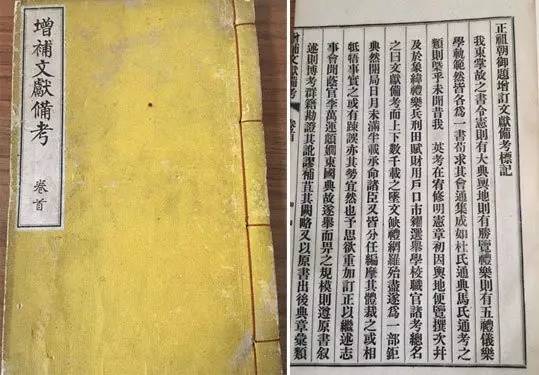 增補文獻備考
卷首
正祖朝御題增訂文獻備考標記
我東掌故之書令憲則有大典輿地則有勝覽禮樂則有五禮儀樂
學軌範然皆各爲一書苟求其會通集成如杜氏通典馬氏通考之
類則槩乎未聞昔我 英考在宥修明憲章初因輿地便覽撰次幷
及於象緯禮樂兵刑田賦財用戶口市糴選擧學校職官諸考總名
之曰文獻備考而上下數千載之墜文缺禮網羅殆盡遂爲一部鉅
典然開局日月未滿半載承命諸臣又皆分任編摩其體裁之或相
牴牾事實之或有踈誤亦其勢宜然也予思欲重加訂正以繼述志
事會聞蔭官李萬運頗嫺東國典故遂擧而畀之規模則遵原書叙
述則博考群籍勘證其訛謬補苴其闕略又以原書出後典章彙類
補文獻備考 卷首